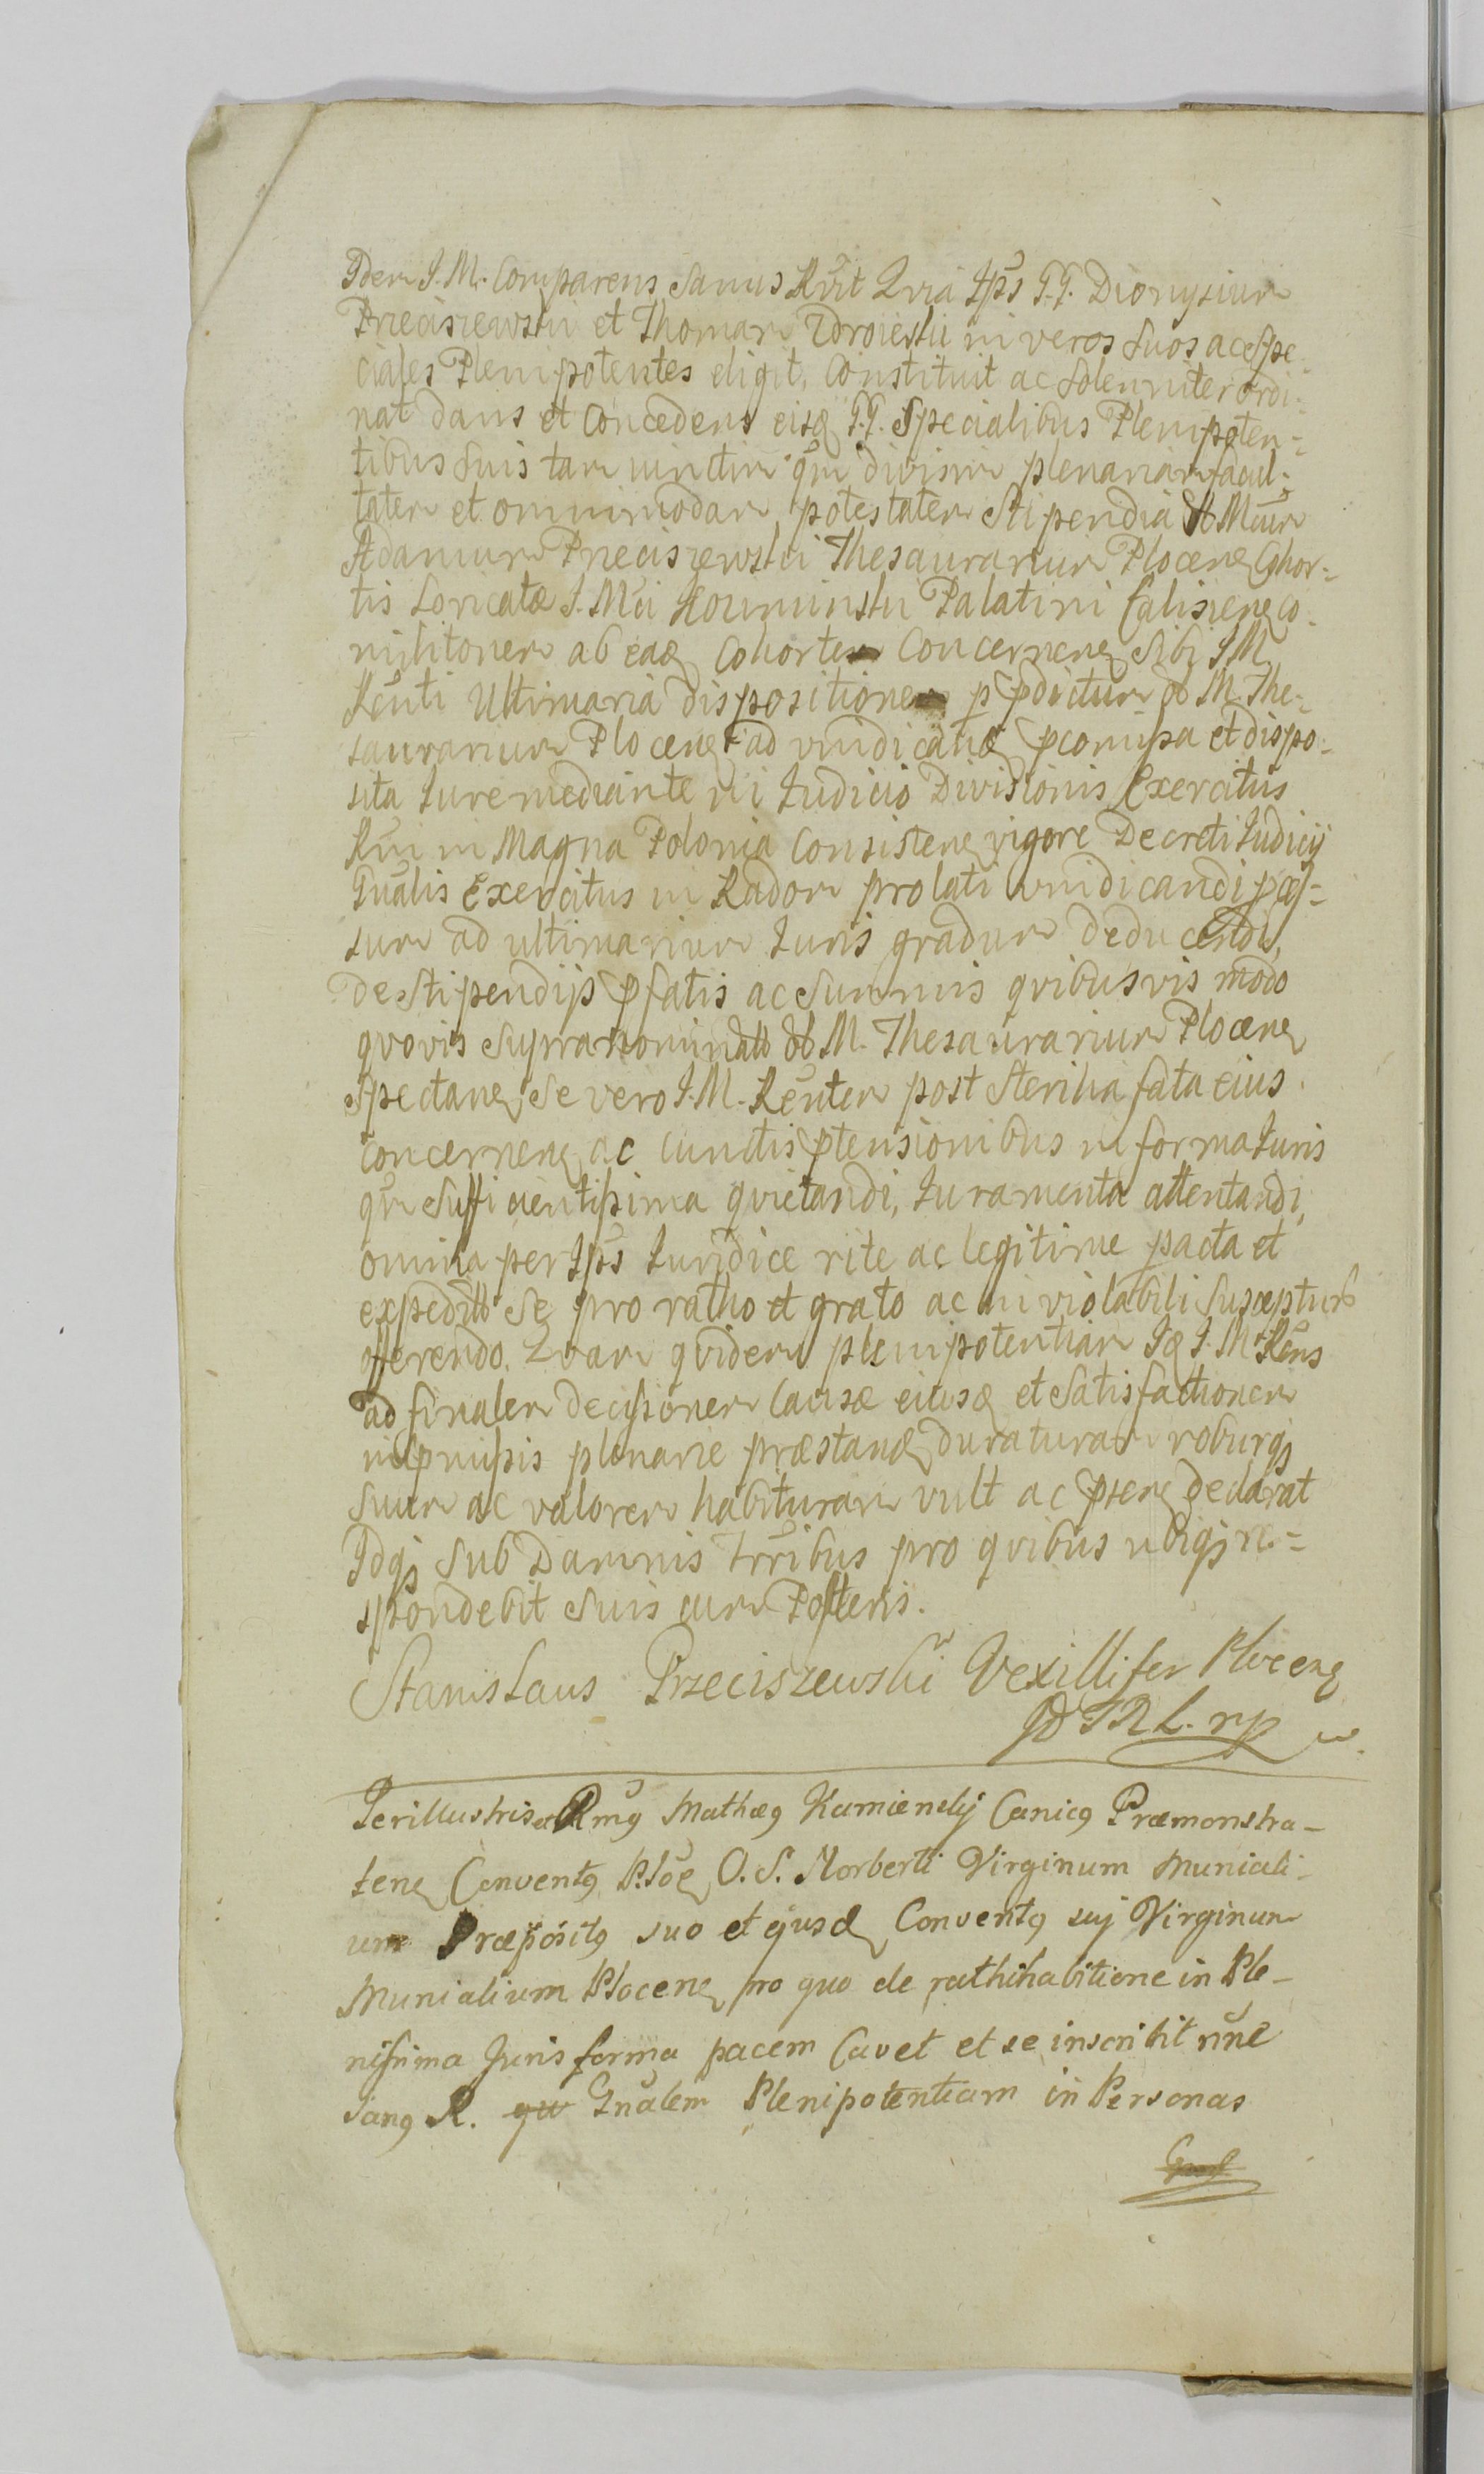 Idem I. M. Comparens Sanus Rvit Quia Ips̃ G. G. Dionysium
Przeciszewski et Thomam Zdroieski in veros suos ac Spe-
ciales Plenipotentes eligit, Constituit ac Solenniter ordi-
nat dans et Concedens eisq G. G. Specialibus Plenipoten-
tibus Suis tam iunctim qm divisim plenariam facul-
tatem et omnimodam potestatem Stipendia M̃cum
Adamum Przeciszewski Thesaurarium Plocene Cohor-
tis Loricatæ I. M̃ci Palatini Calisiene Co-
militonem ab eade Cohorte Concernene sibi I M
R̃enti Ultimaria dispositione p pdictum M. The-
saurarium Plocene ad vindicand pcomissa et dispo-
sita Iure mediante in Iudicio Divisionis Exercitus
Rñi in Magna Polonia Consistene vigore Decreti Iudicij
Gñalis Exercitus in Radom prolati vindicandi
sum ad ultimarium Iuris gradum deducendi,
de Stipendijs pfatis ac Summis quibusvis modo
quovis Supranominatum M. Thesaurarium Plocene
Spectane, Se vero I. M. R̃entem post Sterilia fata eius
Concernene ac cunctis ptensionibus in forma Iuris
qm Sufficientissima quietandi, Iuramenta attentandi,
omnia per Ips̃ Iuridice rite ac legitime pacta et
expedita Se pro ratho et grato ac inviolabili Suscepturum
offerendo. Quam quidem plenipotentiam Id I. M. R̃ens
ad finalem decisionem Causæ eiusd et Satisfactionem
in pmissis plenarie præstand duraturam roburq
suum ac valorem habituram vult ac psene declarat
Idq Sub Damnis Trribus pro quibus ubiq re-
spondebit Suis cum Posteris.
Stanislaus Przeciszewski Vexillifer Plocene
mp
Perillustris et R̃mg Mathæg Kamienskij Canicg Præmonstra-
tene Conventg Ploc O. S. Norberti Virginum Muniali-
um Præpositg suo et ejusd Conventg suj Virginum
Munialium Plocene pro quo de rathihabitione in Ple-
nissima Juris forma pacem Cavet et se inscribit r̃ne
Sang R. Gñalem Plenipotentiam in Personas